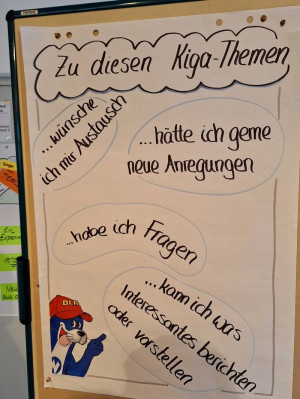 Zu diesen Kiga-Themen
...wünsche
ich mir Austausch
...hätte ich gerne
neue Anregungen
...habe ich Fragen
...kann ich was
Interessantes berichten
oder vorstellen